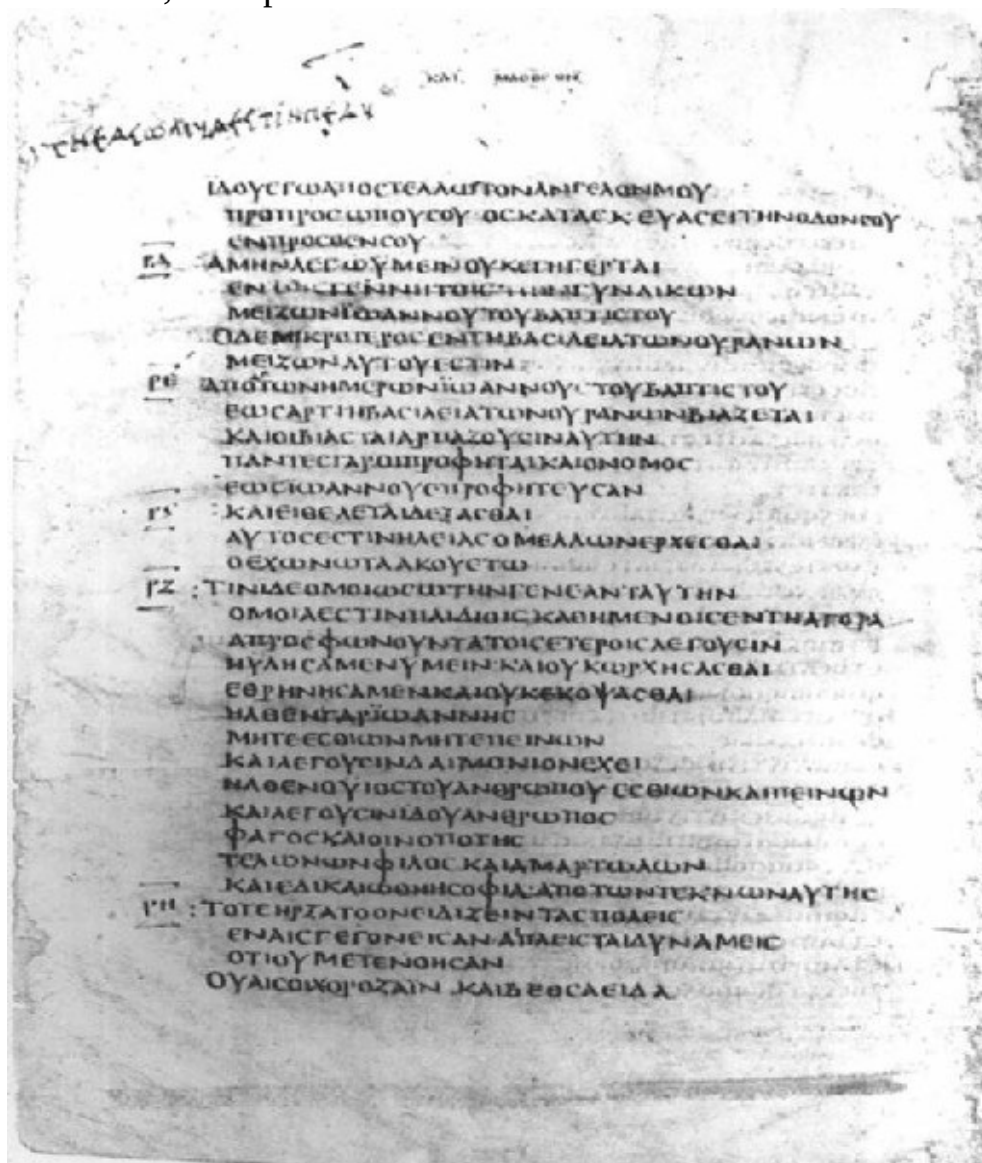 ΚΑΤ ΜΑΘΘΕΟΝ
ΙΔΟΥΕΓΩΑΠΟΣΤΕΛΛΩΤΟΝΑΝΓΕΛΟΝΜΟΥ
ΠΡΟΠΡΟΣΩΠΟΥΣΟΥ ΟΣΚΑΤΑΣΚΕΥΑΣΕΙΤΗΝΟΔΟΝΣΟΥ
ΕΝΠΡΟΣΘΕΝΣΟΥ
ΡΔ ΑΜΗΝΛΕΓΩΫΜΕΙΝΟΥΚΕΓΗΓΕΡΤΑΙ
ΕΝΤΟΙΣΓΕΝΝΗΤΟΙΣΤΩΝΓΥΝΑΙΚΩΝ
ΜΕΙΖΩΝΪΩΑΝΝΟΥΤΟΥΒΑΠΤΙΣΤΟΥ
ΟΔΕΜΙΚΡΟΤΕΡΟΣΕΝΤΗΒΑΣΙΛΕΙΑΤΩΝΟΥΡΑΝΩΝ
ΜΕΙΖΩΝΑΥΤΟΥΕΣΤΙΝ
ΡΕ ΑΠΟΤΩΝΗΜΕΡΩΝΪΩΑΝΝΟΥΣΤΟΥΒΑΠΤΙΣΤΟΥ
ΕΩΣΑΡΤΙΗΒΑΣΙΛΕΙΑΤΩΝΟΥΡΑΝΩΝΒΙΑΖΕΤΑΙ
ΚΑΙΟΙΒΙΑΣΤΑΙΑΡΠΑΖΟΥΣΙΝΑΥΤΗΝ
ΠΑΝΤΕΣΓΑΡΟΙΠΡΟΦΗΤΑΙΚΑΙΟΝΟΜΟΣ
ΕΩΣΙΩΑΝΝΟΥΕΠΡΟΦΗΤΕΥΣΑΝ
Ρϛ ΚΑΙΕΙΘΕΛΕΤΑΙΔΕΞΑΣΘΑΙ
ΑΥΤΟΣΕΣΤΙΝΗΛΕΙΑΣΟΜΕΛΛΩΝΕΡΧΕΣΘΑΙ
ΟΕΧΩΝΩΤΑΑΚΟΥΕΤΩ
ΡΖ : ΤΙΝΙΔΕΟΜΟΙΩΣΩΤΗΝΓΕΝΕΑΝΤΑΥΤΗΝ
ΟΜΟΙΑΕΣΤΙΝΠΑΙΔΙΟΙΣΚΑΘΗΜΕΝΟΙΣΕΝΤΗΑΓΟΡΑ
ΑΠΡΟΣΦΩΝΟΥΝΤΑΤΟΙΣΕΤΕΡΟΙΣΛΕΓΟΥΣΙΝ
ΗΥΛΗΣΑΜΕΝΥΜΕΙΝ ΚΑΙΟΥΚΩΡΧΗΣΑΣΘΑΙ
ΕΘΡΗΝΗΣΑΜΕΝΚΑΙΟΥΚΕΚΟΨΑΣΘΑΙ
ΗΛΘΕΝΓΑΡΪΩΑΝΝΗΣ
ΜΗΤΕΕΣΘΙΩΝΜΗΤΕΠΕΙΝΩΝ
ΚΑΙΛΕΓΟΥΣΙΝΔΑΙΜΟΝΙΟΝΕΧΕΙ
ΗΛΘΕΝΟΥΙΟΣΤΟΥΑΝΘΡΩΠΟΥ ΕΣΘΙΩΝΚΑΙΠΕΙΝΩΝ
ΚΑΙΛΕΓΟΥΣΙΝΙΔΟΥΑΝΘΡΩΠΟΣ
ΦΑΓΟΣΚΑΙΟΙΝΟΠΟΤΗΣ
ΤΕΛΩΝΩΝΦΙΛΟΣΚΑΙΑΜΑΡΤΩΛΩΝ
ΚΑΙΕΔΙΚΑΙΩΘΗΗΣΟΦΙΑ:ΑΠΟΤΩΝΤΕΚΝΩΝΑΥΤΗΣ
ΡΗ : ΤΟΤΕΗΡΞΑΤΟΟΝΕΙΔΙΖΕΙΝΤΑΣΠΟΛΕΙΣ
ΕΝΑΙΣΓΕΓΟΝΕΙΣΑΝΑΙΠΛΕΙΣΤΑΙΔΥΝΑΜΕΙΣ
ΟΤΙΟΥΜΕΤΕΝΟΗΣΑΝ
ΟΥΑΙΣΟΙΧΟΡΟΖΑΪΝ ΚΑΙΒΕΘΣΑΕΙΔΑ